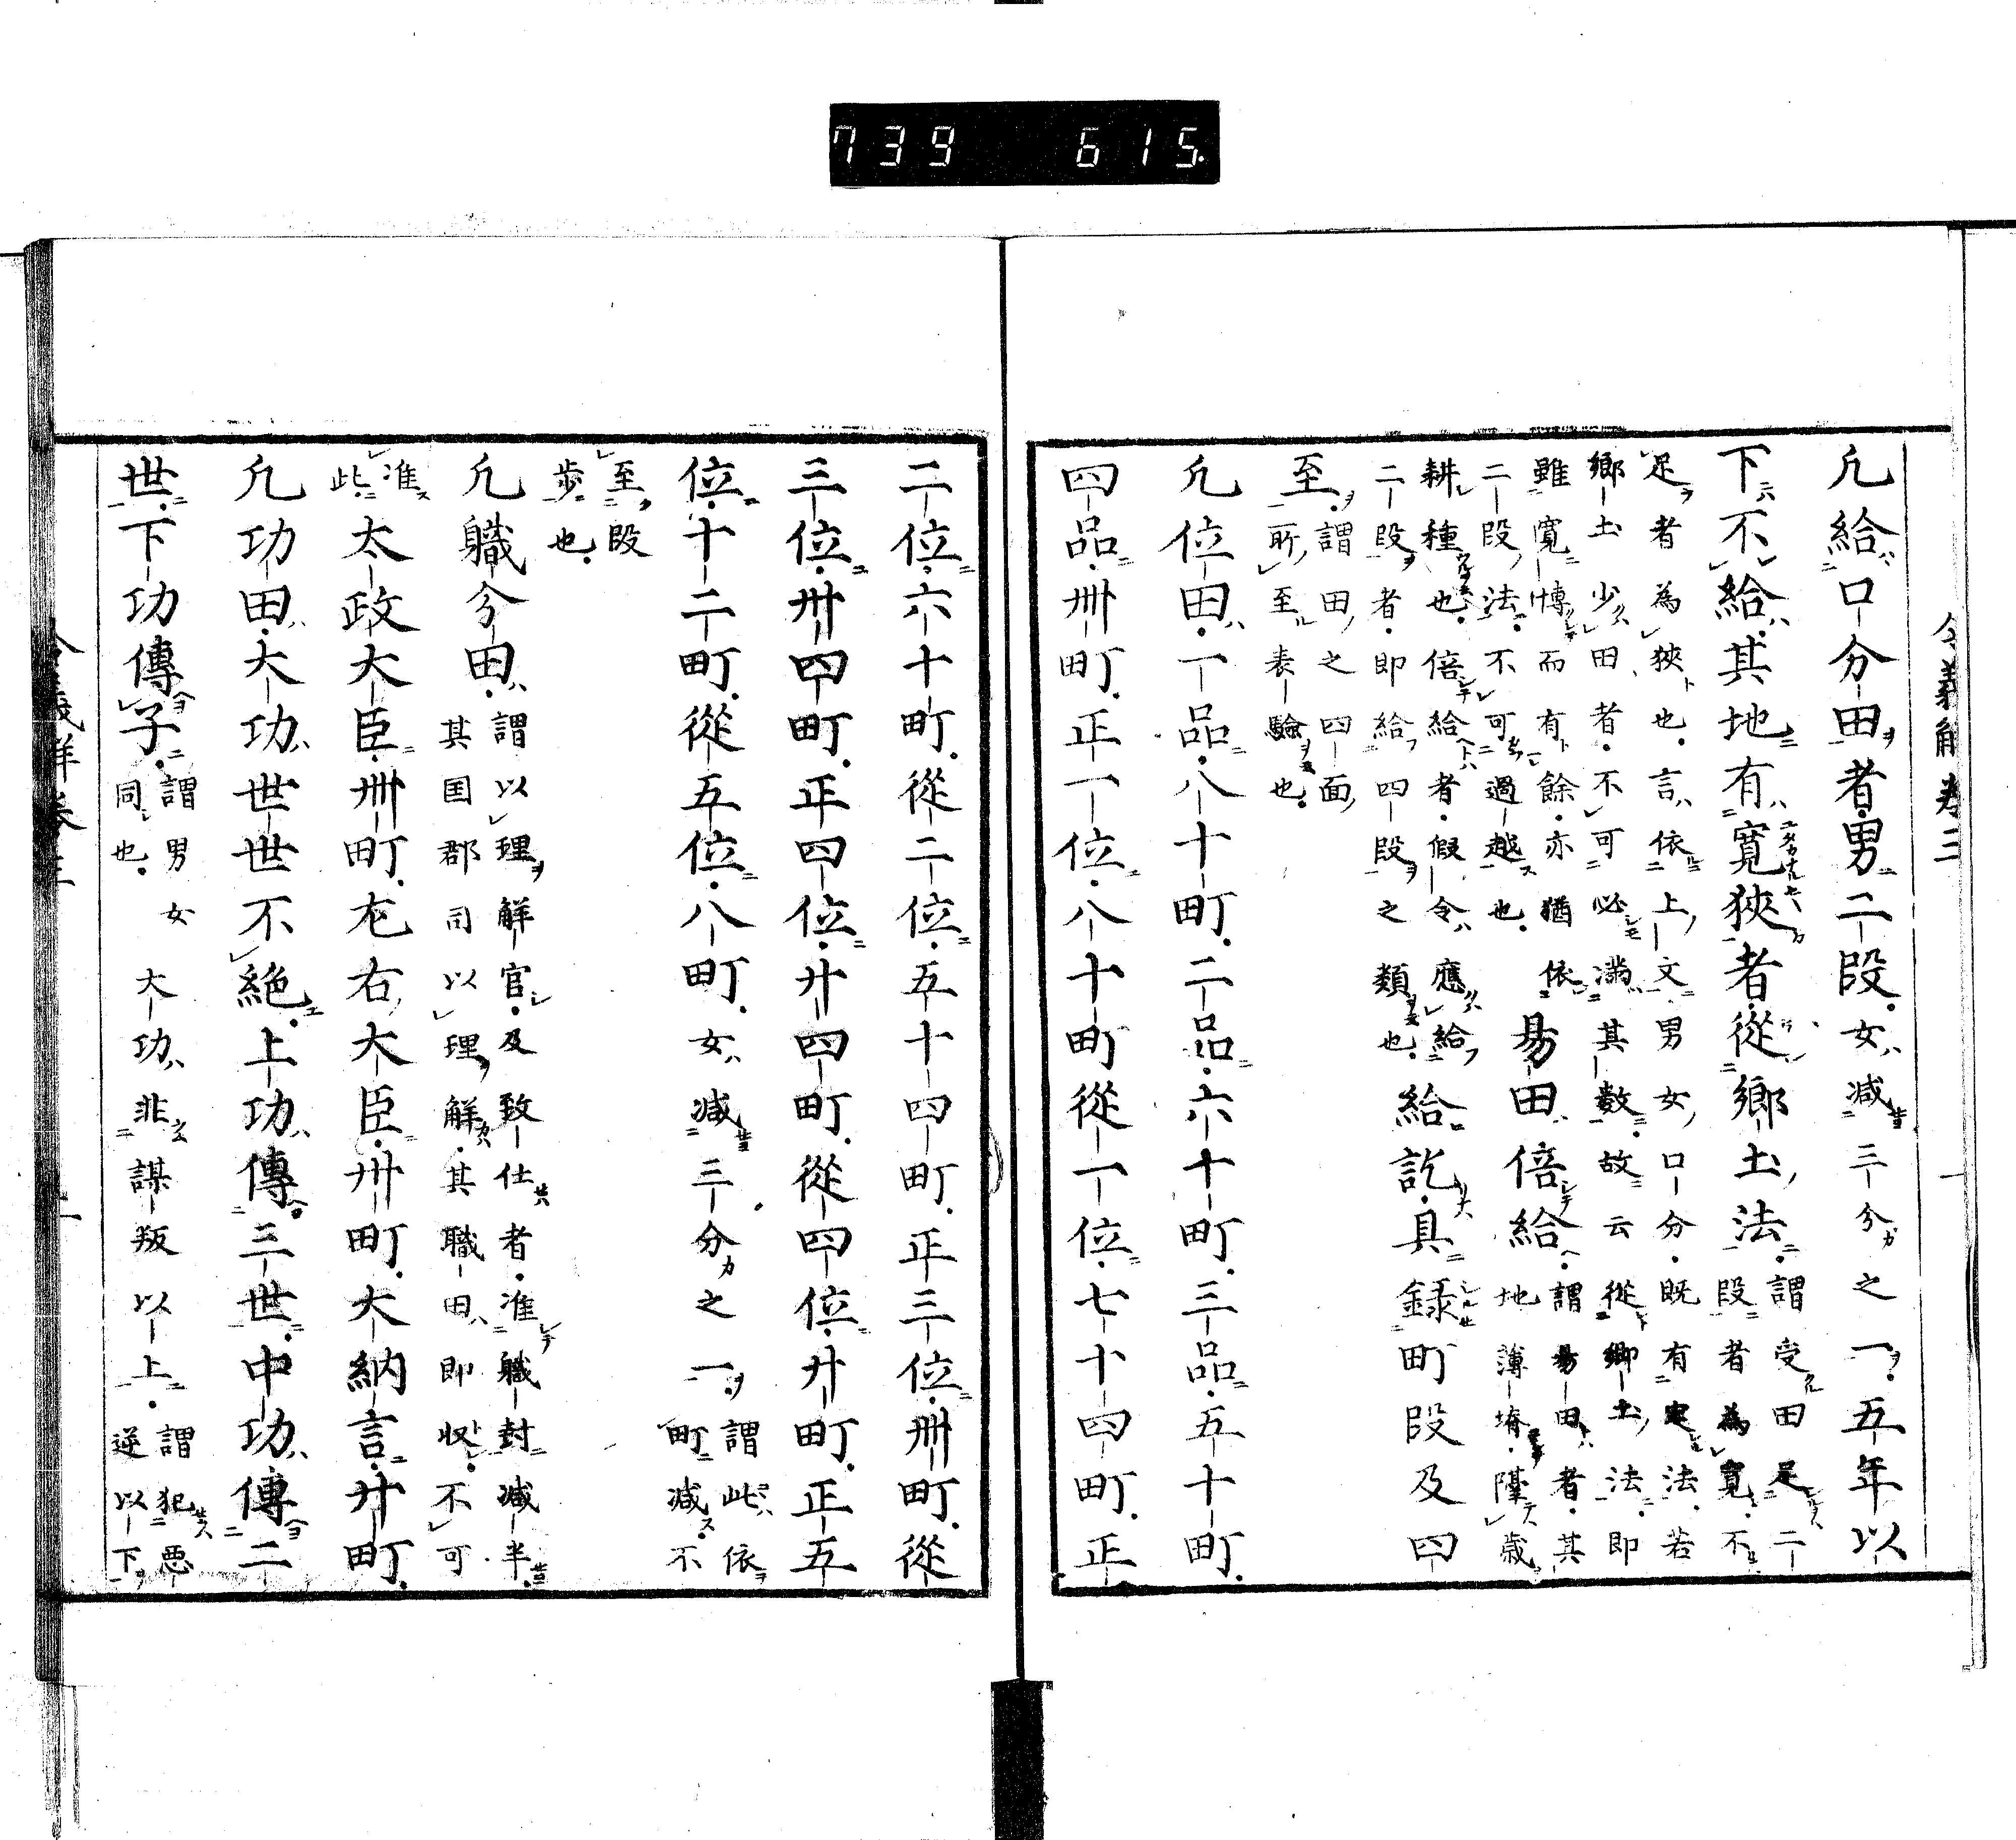 令義解卷三　一
凡給口分田者男二段女減三分之一五年以
下不給其地有寬狹者從鄉土法謂受田足二
段者為寬不
足者為狹也言依上文男女口分既有定法若
鄉土少田者不可必滿其數故云從鄉土法即
雖寬博而有餘亦猶依
二段法不可過越也
易田倍給謂易田者其
地薄塉隨歲
耕種也倍給者假令應給
二段者即給四段之類也
給訖具錄町段及四
至謂田之四面
所至表驗也
凡位田一品八十町二品六十町三品五十町
四品卌町正一位八十町從一位七十四町正
二位六十町從二位五十四町正三位卌町從
三位卅四町正四位廿四町從四位廿町正五
位十二町從五位八町女減三分之一謂此依
町減不
至段
步也
凡職分田謂以理解官及致仕者准職封減半
其国郡司以理解其職田即收不可
准
此
太政大臣卌町左右大臣卅町大納言廿町
凡功田大功世世不絶上功傳三世中功傳二
世下功傳子謂男女
同也
大功非謀叛以上謂犯惡
逆以下
令義解卷三　一
739　615